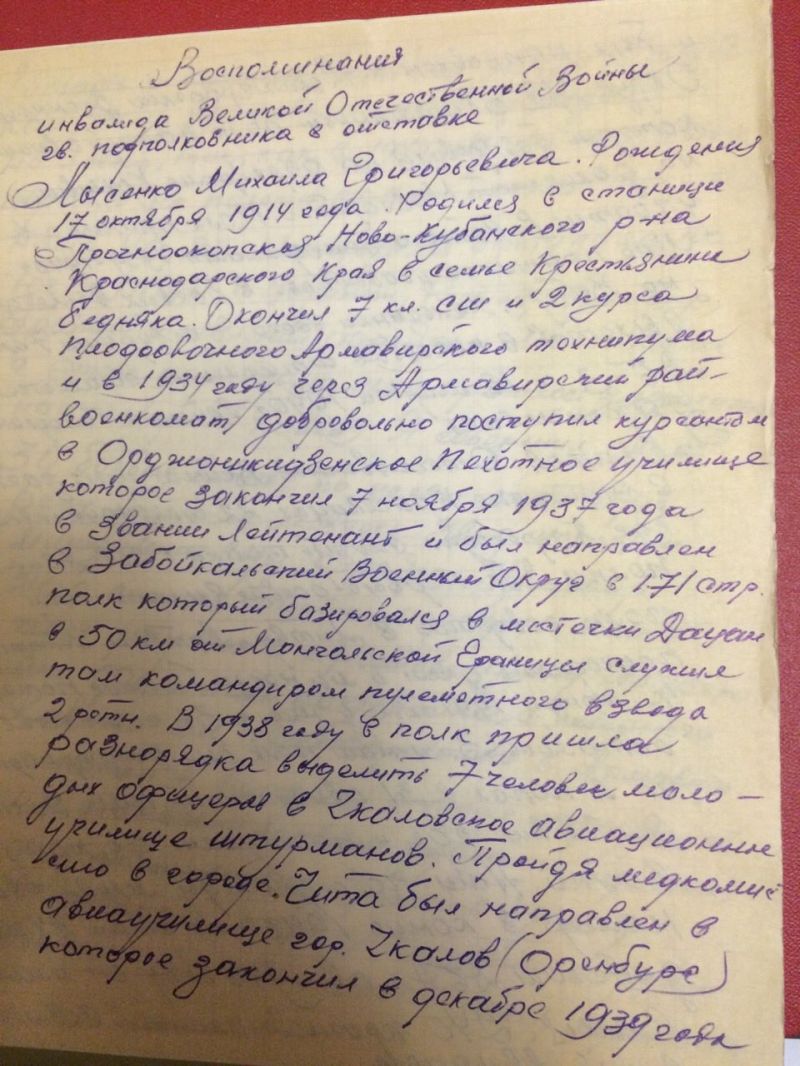 Воспоминания
инвалида Великой Отечественной Войны
гв. подполковника в отставке
Лысенко Михаила Григорьевича. Рождения
17 октября 1914 года. Родился в станице
Прочноокопская Ново-Кубанского р-на
Краснодарского Края в семье Крестьянина
бедняка. Окончил 7 кл. сш и 2 курса
плодоовочного Армавирского техникума
и в 1934 году через Армавирский рай-
военкомат добровольно поступил курсантом
в Орджоникидзенское Пехотное училище
которое закончил 7 ноября 1937 года
в звании Лейтенант и был направлен
в Забойкальский Военный Округ в 171 стр.
полк который базировался в местечки Дацан
в 50 км от Мончольской Границы служил
там командиром пулеметного взвода
2 роты. В 1938 году в полк пришла
разнорядка выделить 7 человек моло-
дых офицеров в Чкаловское авиационное
училище штурманов. Пройдя медкомис
сию в городе. Чита был направлен в
авиаучилище гор. Чкалов (Оренбург)
которое закончил в декабре 1939 года